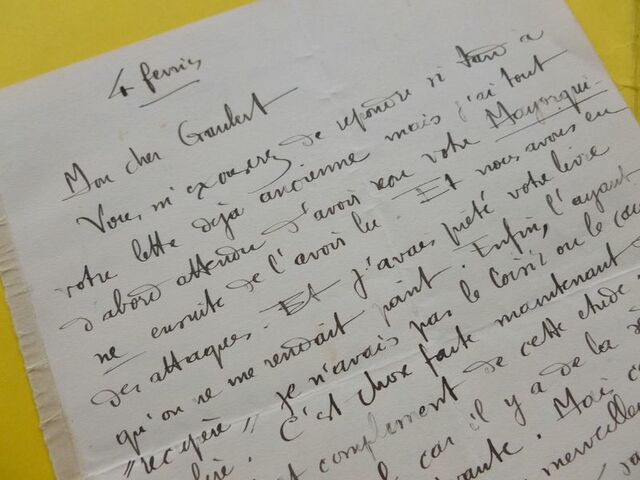 4 février
Mon cher Gaubert
Vous m'excuserez de répondre si tard à
votre lettre déjà ancienne mais j'ai tout
d'abord attendu d'avoir reçu votre Mayorqui-
ne ensuite de l'avoir lu. Et nous avons eu
des attaques. Et j'avais prêté votre livre
qu'on ne me rendait point. Enfin, l'ayant
"récupéré" je n'avais pas le loisir ou le
C'est chose faite maintenant
complément de cette étude
car il y a de la
Mais
merveille